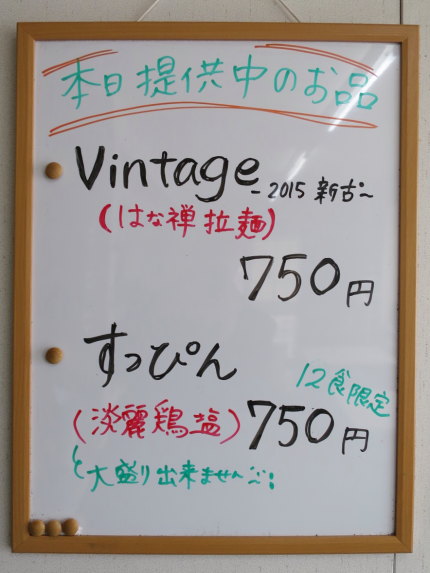 本日提供中のお品
Vintage
-2015 新古-
(はな禅拉麺)
750円
すっぴん
12食限定
(淡麗鶏塩)
750円
大盛り出来ません